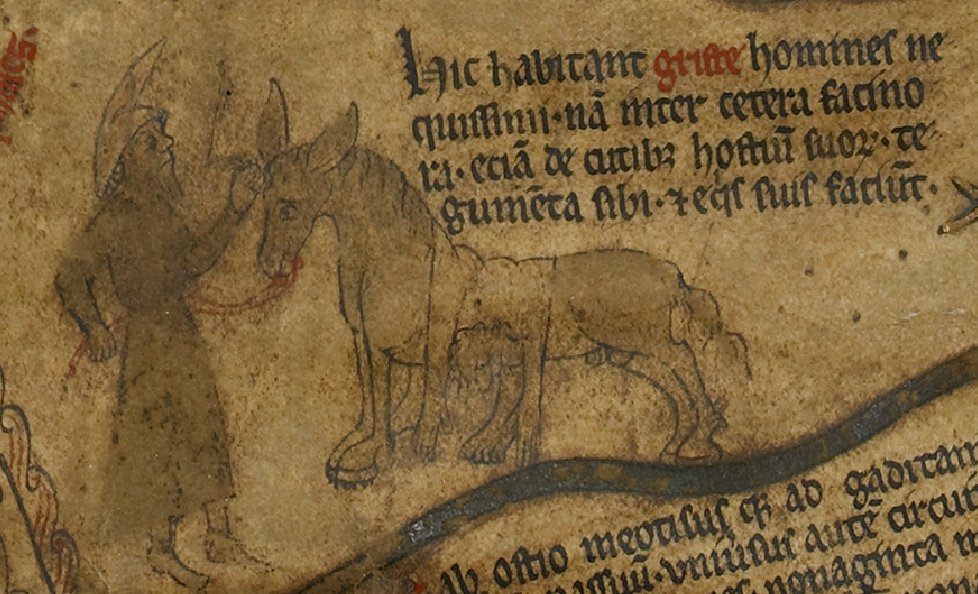 Hic habitant griste homines ne
quissimi · nā inter cetera facino
ra · eciā de cutibꝫ hostiū suoꝝ · te
gumēta sibi · ⁊ eq̄s suis faciūt ·
ab ostio meotisus qͥ ad gaditan
uniuersus autē circui
nonaginta